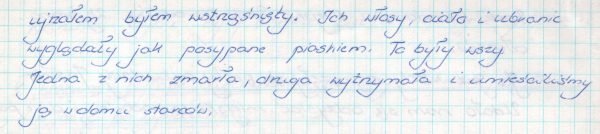 ujrzałem byłem wstrząśnięty. Ich włosy, ciała i ubranie
wyglądały jak posypane piaskiem. To były wszy
Jedna z nich zmarła, druga wytrzymała i umieściliśmy
ją w domu starców.